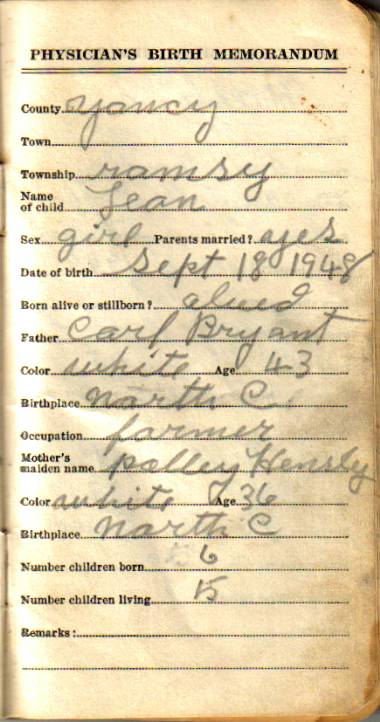 PHYSICIAN'S BIRTH MEMORANDUM
County yancy
Town
Township ramsy
Name of child Jean
Sex girl Parents married? yes
Date of birth Sept 18 1948
Born alive or stillborn? alived
Father Carl Bryant
Color white Age 43
Birthplace North C
Occupation farmer
Mother's maiden name polley Hensly
Color white Age 36
Birthplace North C
Number children born 6
Number children living 15
Remarks: